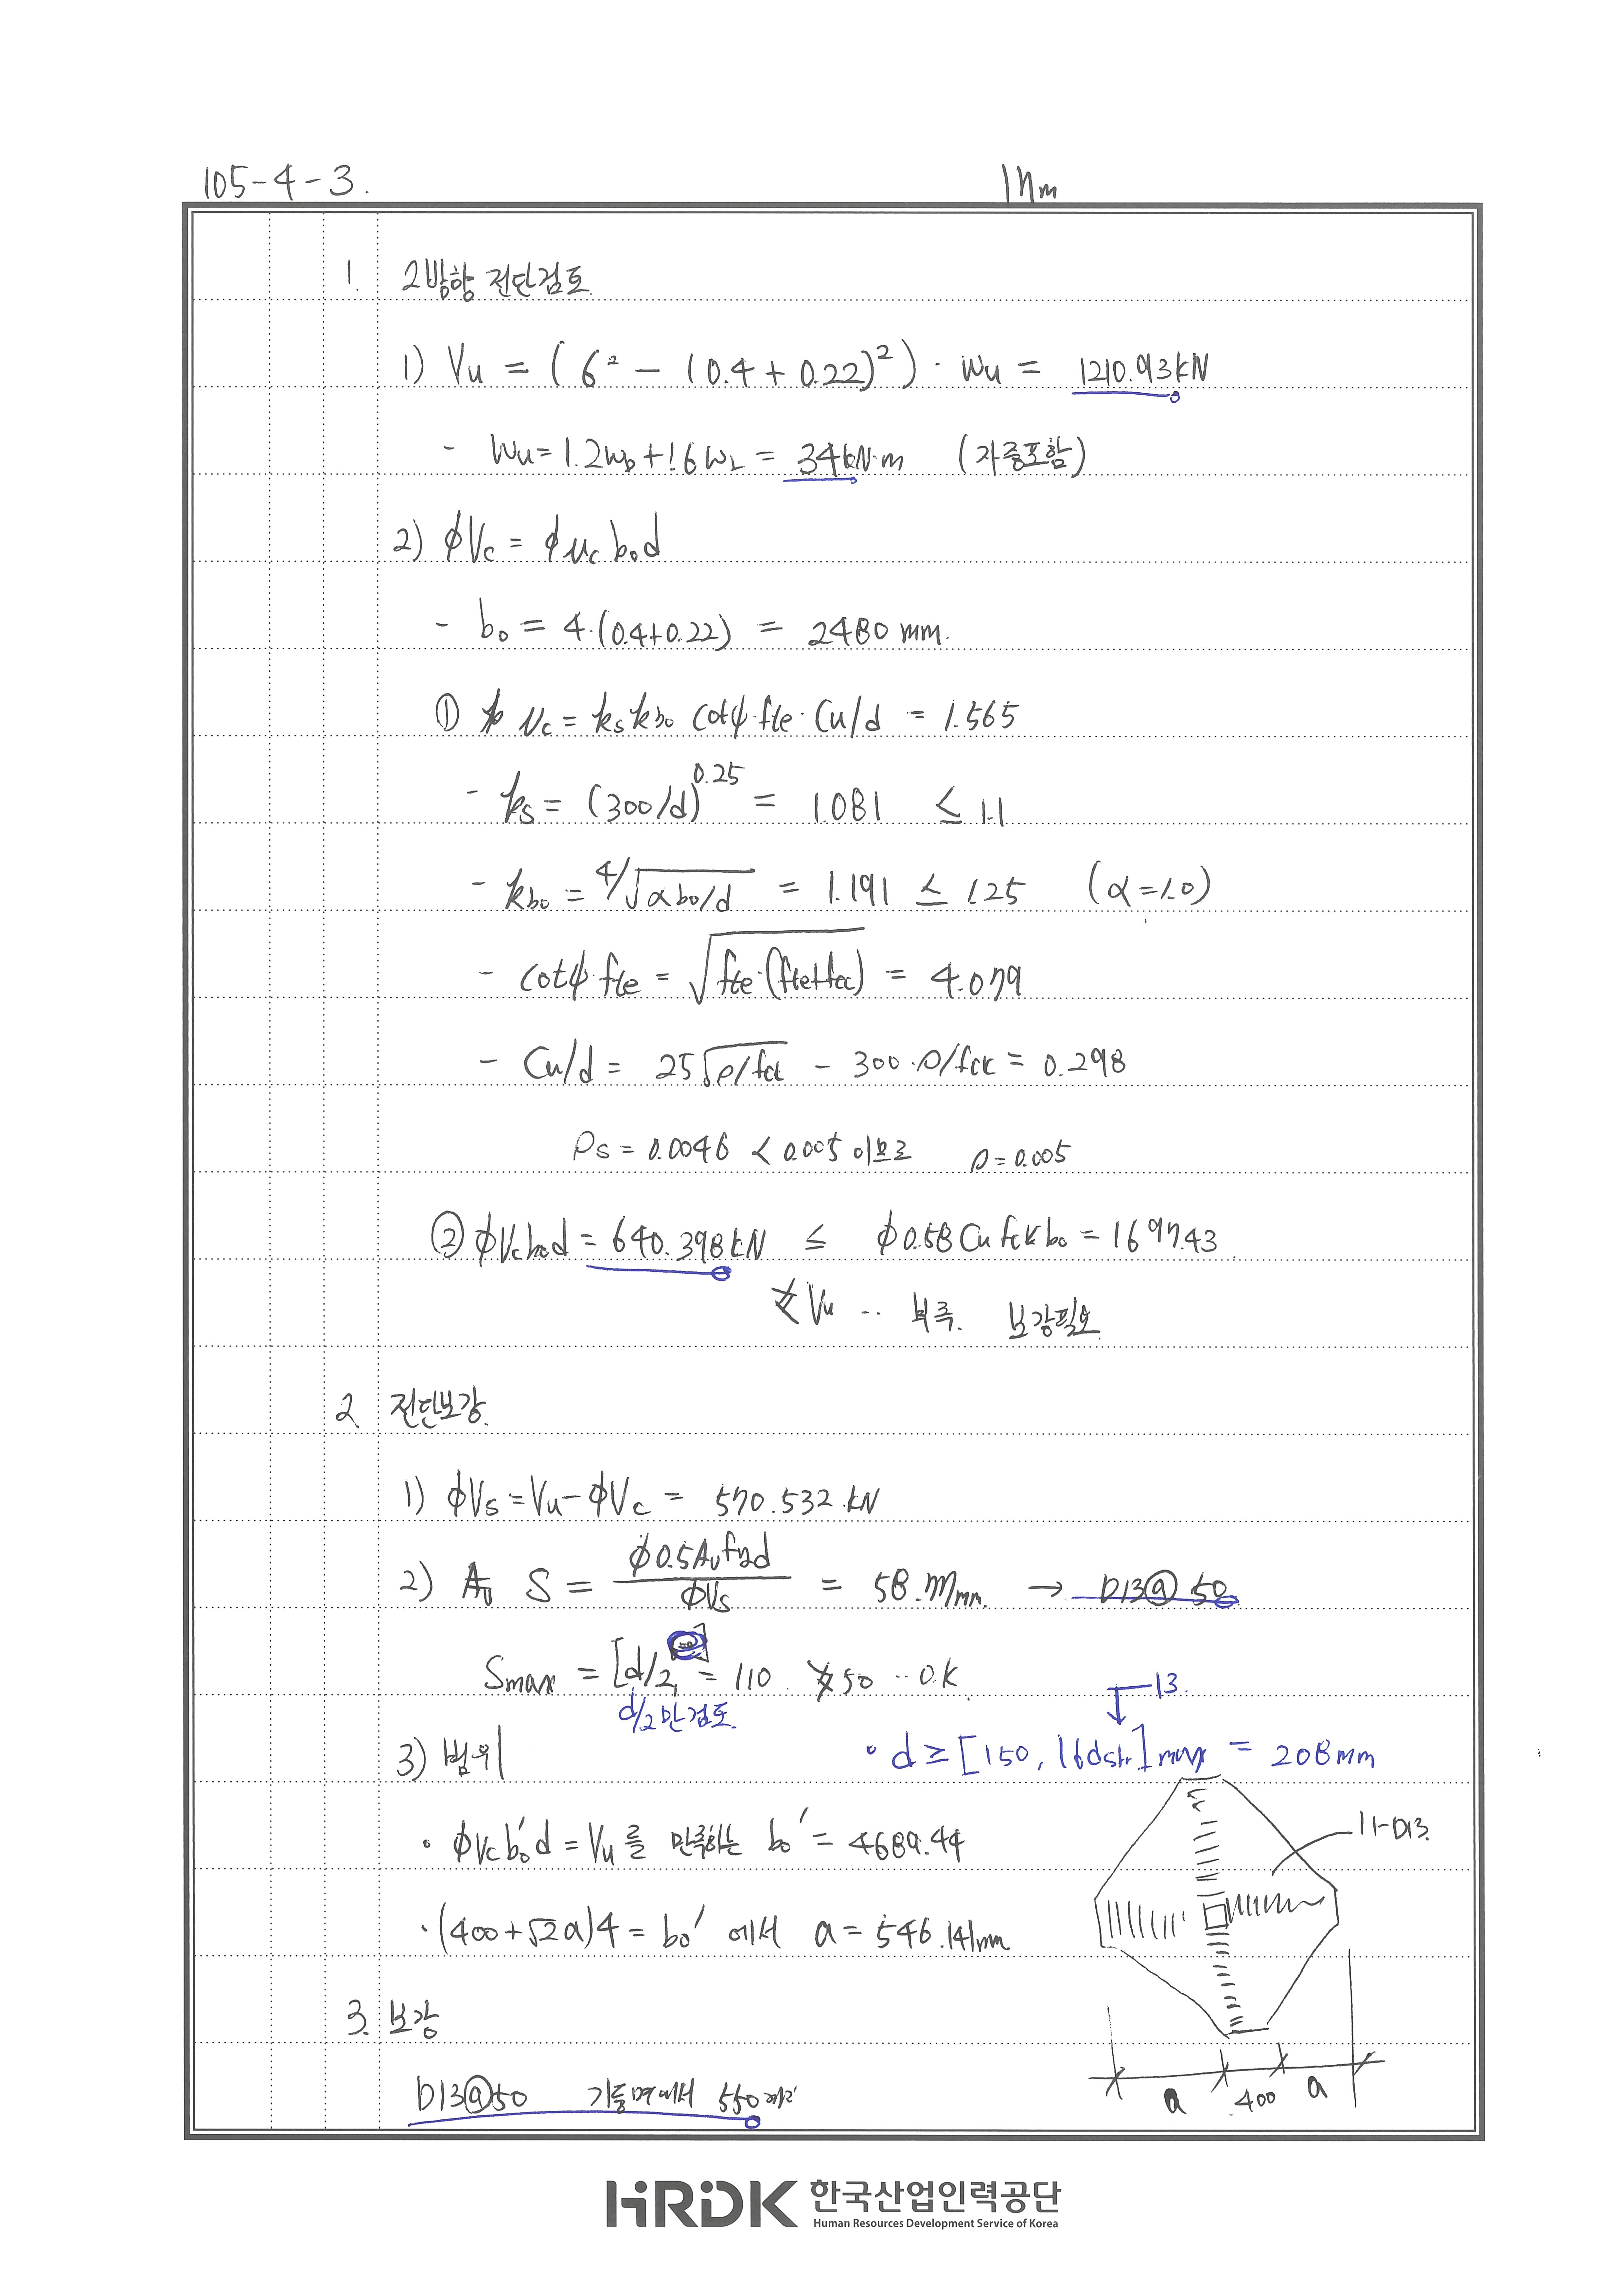 105-4-3.
1. 2방향 전단검토
1) Vu = (6² - (0.4+0.22)²) · wu = 1210.93kN
- wu = 1.2wD + 1.6wL = 34kN·m (자중포함)
2) φVc = φνc bod
- bo = 4·(0.4+0.22) = 2480 mm.
① νc = ks kbo cotψ·fte·Cu/d = 1.565
- ks = (300/d)^0.25 = 1.081 ≤ 1.1
- kbo = 4/√(αbo/d) = 1.191 ≤ 1.25 (α=1.0)
- cotψ·fte = √(fte·(fte+fcc)) = 4.079
- Cu/d = 25√(ρ/fck) - 300·ρ/fck = 0.298
ρs = 0.0046 < 0.005 이므로 ρ=0.005
② φVcbod = 640.398kN ≤ φ0.58 Cu fck bo = 1697.43
≱ Vu ·· 부족. 보강필요
2. 전단보강.
1) φVs = Vu - φVc = 570.532 kN
2) S = φ0.5Avfyd / φVs = 58. mm. → D13@50
Smax = [d/2, ] = 110 ≯ 50 ·· O.K
d/2만검토.
13
3) 범위
• d ≥ [150, 16dstr]max = 208mm
• φVcbo'd = Vu를 만족하는 bo' = 4689.44
11-D13.
• (400+√2a)4 = bo' 에서 a = 546.141mm
3. 보강
a 400 a
D13@50 기둥면에서 550까지
HRDK 한국산업인력공단
Human Resources Development Service of Korea